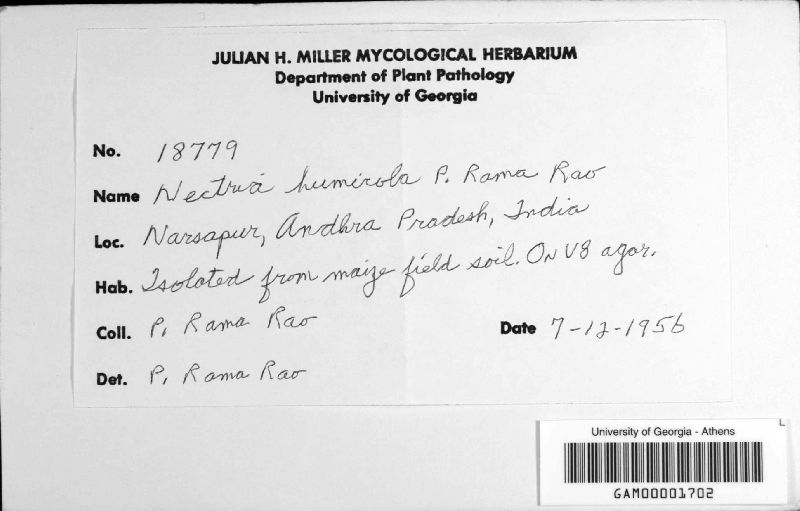 JULIAN H. MILLER MYCOLOGICAL HERBARIUM
Department of Plant Pathology
University of Georgia
No. 18779
Name Nectria humicola P. Rama Rao
Loc. Narsapur, Andhra Pradesh, India
Hab. Isolated from maize field soil. On V8 agar.
Coll. P. Rama Rao Date 7-12-1956
Det. P. Rama Rao
L
University of Georgia - Athens
GAM00001702